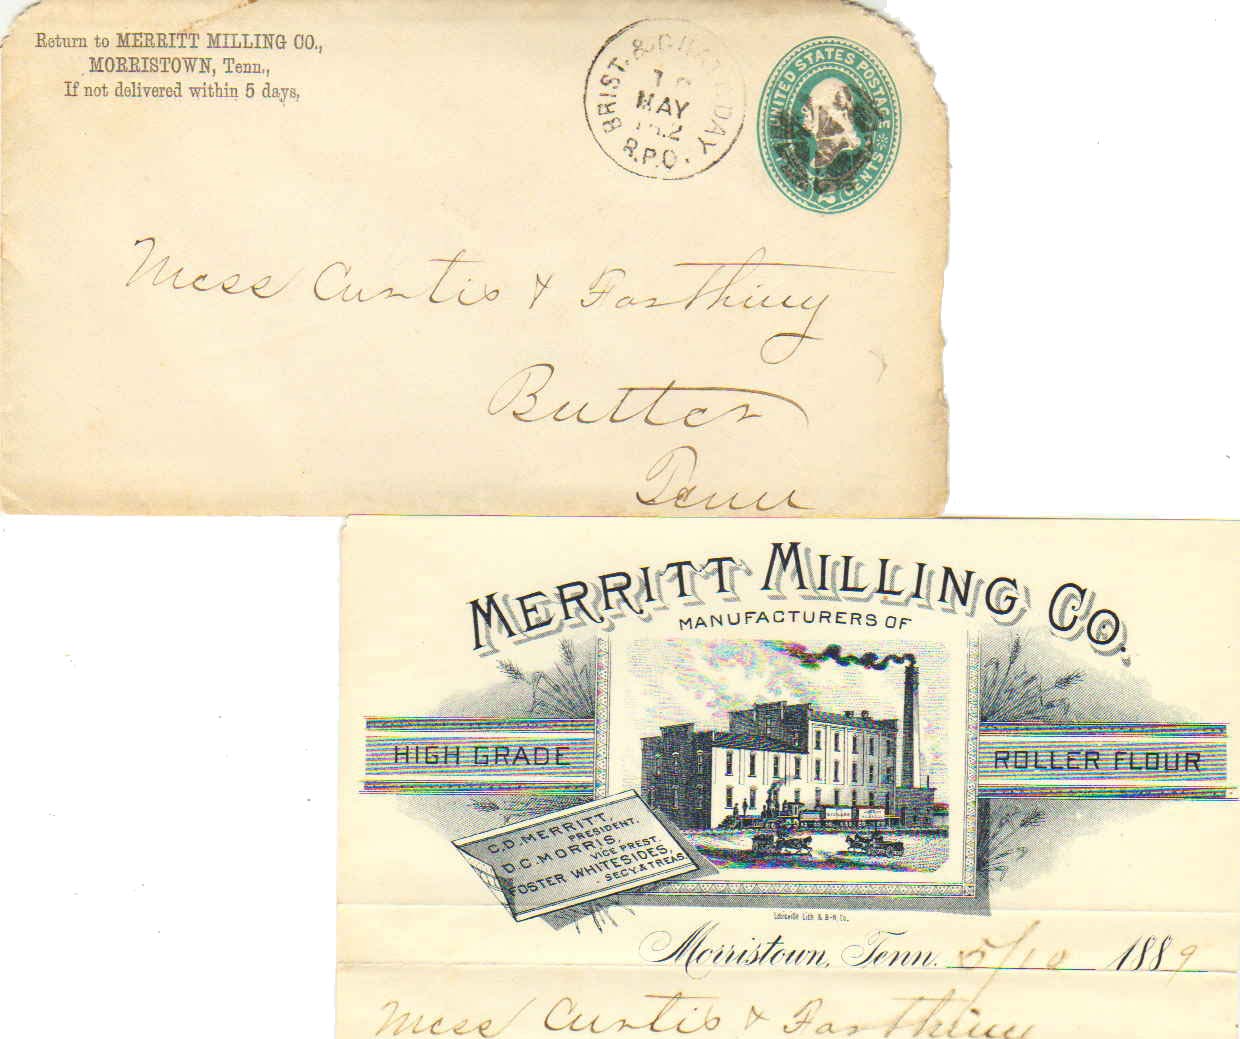 Return to MERRITT MILLING CO.,
MORRISTOWN, Tenn.,
If not delivered within 5 days,
BRIST. &
MAY
R.P.O.
DAY
UNITED STATES POSTAGE
2 CENTS
Mess Curtis & Farthing
Butler
Tenn
MERRITT MILLING CO.
MANUFACTURERS OF
HIGH GRADE
ROLLER FLOUR
C.D. MERRITT,
PRESIDENT.
D.C. MORRIS,
VICE PREST.
FOSTER WHITESIDES,
SECY. & TREAS.
Morristown, Tenn. 5/10 1889
Mess Curtis & Farthing